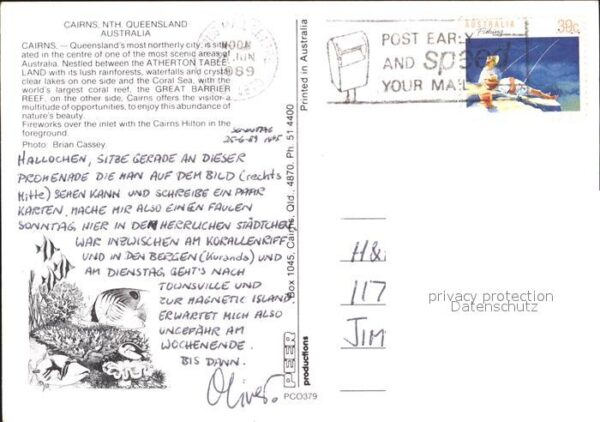 CAIRNS, NTH. QUEENSLAND
AUSTRALIA
CAIRNS. — Queensland's most northerly city, is situ-
ated in the centre of one of the most scenic areas of
Australia. Nestled between the ATHERTON TABLE
LAND with its lush rainforests, waterfalls and crystal
clear lakes on one side and the Coral Sea, with the
world's largest coral reef, the GREAT BARRIER
REEF, on the other side, Cairns offers the visitor a
multitude of opportunities, to enjoy this abundance of
nature's beauty.
Fireworks over the inlet with the Cairns Hilton in the
foreground.
Photo: Brian Cassey
SONNTAG
25-6-89 1445
HALLOCHEN, SITZE GERADE AN DIESER
PROMENADE DIE MAN AUF DEM BILD (rechts
Mitte) SEHEN KANN UND SCHREIBE EIN PAAR
KARTEN. MACHE MIR ALSO EINEN FAULEN
SONNTAG HIER IN DEM HERRLICHEN STÄDTCHEN.
WAR INZWISCHEN AM KORALLENRIFF
UND IN DEN BERGEN (Kuranda) UND
AM DIENSTAG GEHT'S NACH
TOWNSVILLE UND
ZUR MAGNETIC ISLAND.
ERWARTET MICH ALSO
UNGEFÄHR AM
WOCHENENDE.
BIS DANN.
Oliver.
PCO379
PEER
productions
Box 1045, Cairns, Qld., 4870. Ph. 51 4400
Printed in Australia
NOON
JUN
1989
POST EARLY
AND speed
YOUR MAIL
AUSTRALIA
39c
Fishing
H&
117
JIM
privacy protection
Datenschutz